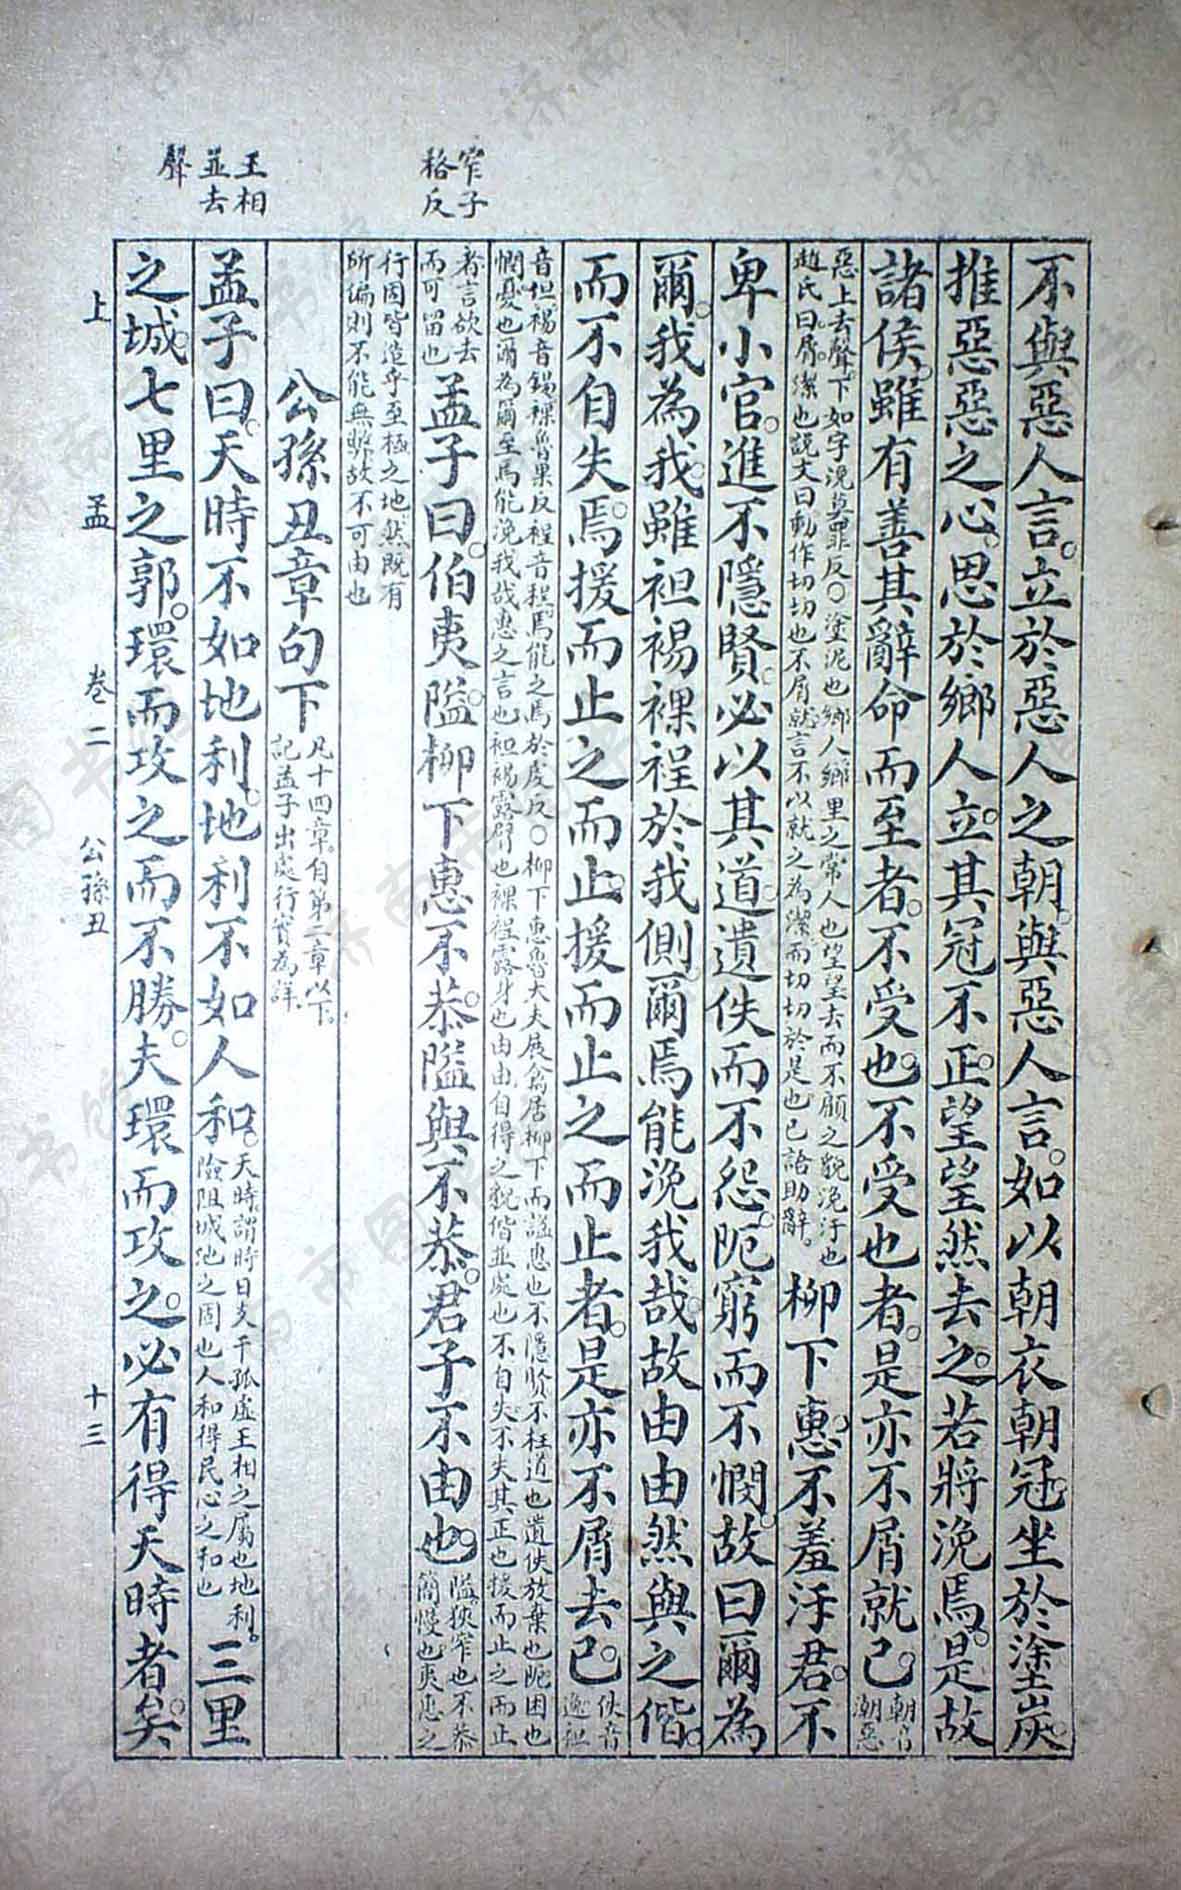 窄子
輅反
王相
並去
聲
不與惡人言。立於惡人之朝。與惡人言。如以朝衣朝冠。坐於塗炭。
推惡惡之心。思於鄉人立。其冠不正。望望然去之。若將浼焉。是故
諸侯。雖有善其辭命而至者。不受也。不受也者。是亦不屑就已。朝音潮惡
惡上去聲下如字浼莫罪反○塗泥也鄉人鄉里之常人也望望去而不顧之貌浼汙也
趙氏曰。屑潔也說文曰動作切切也不屑就言不以就之為潔而切切於是也已語助辭。柳下惠。不羞汙君。不
卑小官。進不隱賢。必以其道。遺佚而不怨。阨窮而不憫。故曰爾為
爾。我為我。雖袒裼裸裎於我側。爾焉能浼我哉。故由由然與之偕。
而不自失焉。援而止之而止。援而止之而止者。是亦不屑去已。佚音逸袒
音但裼音錫裸魯果反裎音程焉能之焉於虔反○柳下惠魯大夫展禽居柳下而諡惠也不隱賢不枉道也遺佚放棄也阨困也
憫憂也爾為爾至焉能浼我哉惠之言也袒裼露臂也裸裎露身也由由自得之貌偕並處也不自失不失其正也援而止之而止
者言欲去而可留也孟子曰。伯夷隘。柳下惠不恭。隘與不恭。君子不由也。隘狹窄也不恭簡慢也夷惠之
行固皆造乎至極之地然既有
所編則不能無弊故不可由也
公孫丑章句下凡十四章。自第二章以下。記孟子出處行實為詳。
孟子曰。天時不如地利。地利不如人和。天時謂時日支干孤虛王相之屬也地利。險阻城池之固也人和得民心之和也三里
之城。七里之郭。環而攻之而不勝。夫環而攻之。必有得天時者矣。
上 孟 卷二 公孫丑 十三